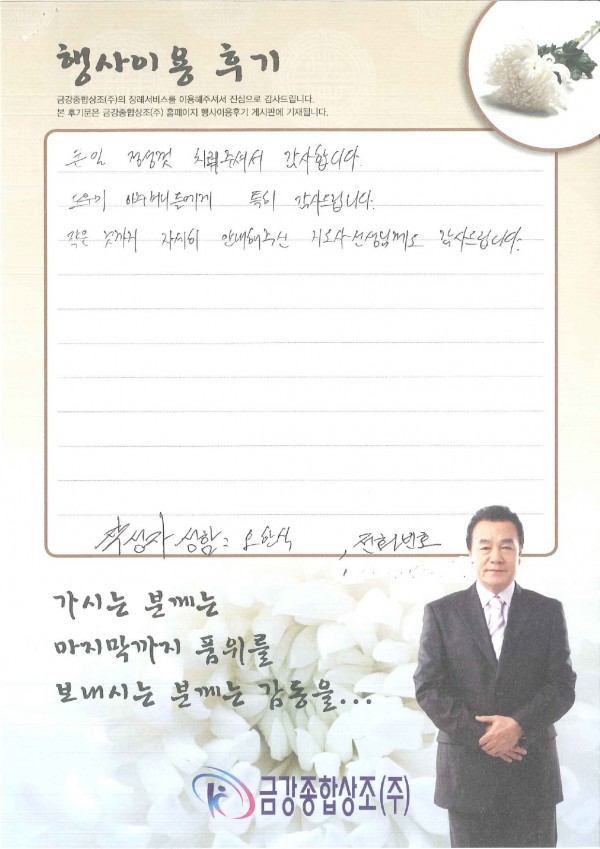 행사이용 후기
금강종합상조(주)의 장례서비스를 이용해주셔서 진심으로 감사드립니다.
본 후기문은 금강종합상조(주) 홈페이지 행사이용후기 게시판에 기재됩니다.
큰일 정성껏 치뤄주셔서 감사합니다.
도우미 아주머니들에게 특히 감사드립니다.
작은 것까지 자세히 안내해주신 지도사선생님께도 감사드립니다.
작성자 성함: 오한식 전화번호
가시는 분께는
마지막까지 품위를
보내시는 분께는 감동을...
금강종합상조(주)